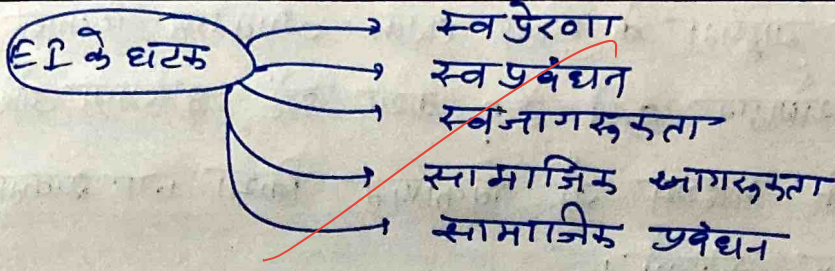 EI के घटक
स्व प्रेरणा
स्व प्रबंधन
स्वजागरूकता
सामाजिक जागरूकता
सामाजिक प्रबंधन